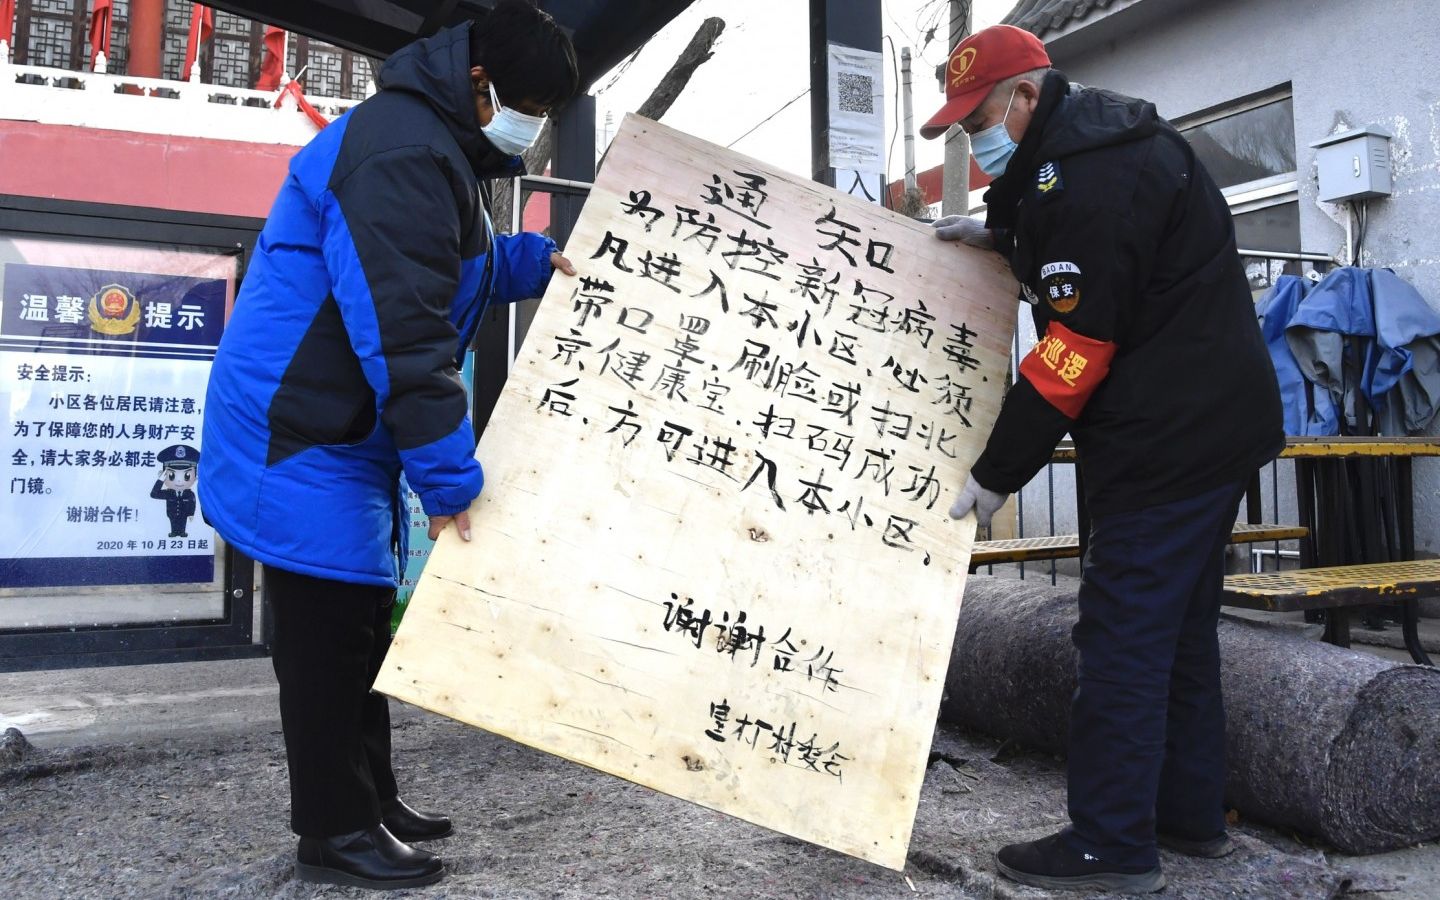 通知
为防控新冠病毒.
凡进入本小区、必须
带口罩.刷脸或扫北
京健康宝.扫码成功
后、方可进入本小区。
谢谢合作
村委会
温馨提示
安全提示：
小区各位居民请注意，
为了保障您的人身财产安
全，请大家务必都走
门镜。
谢谢合作！
2020 年 10 月 23 日起
入
BAOAN
保安
巡逻